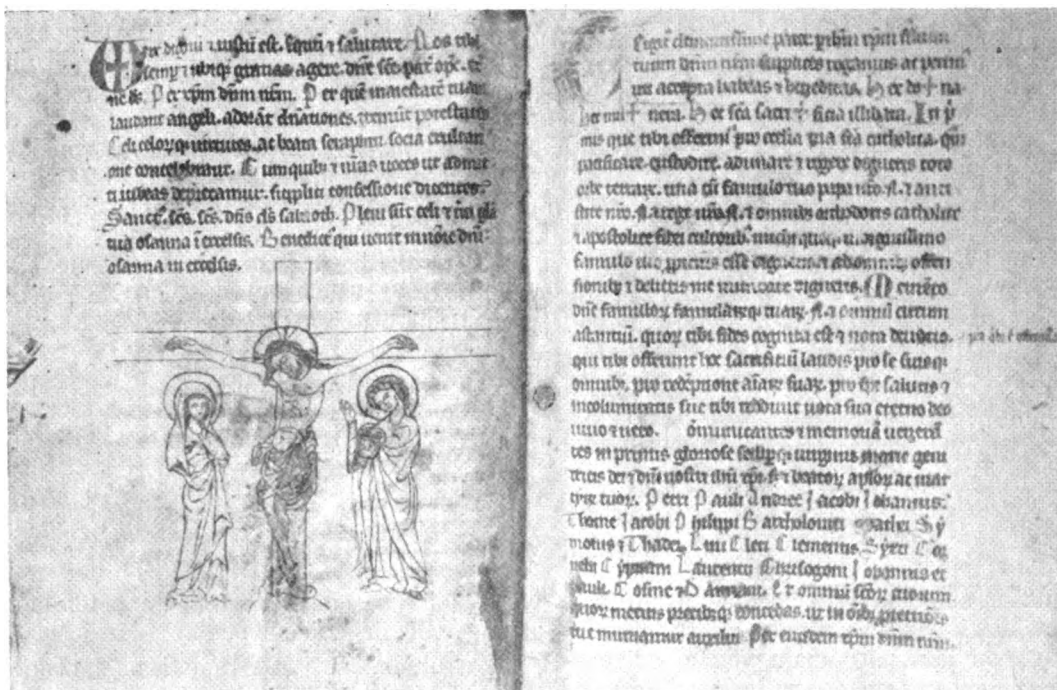 Vere dignū ⁊ iustū est. equū ⁊ salutare. Nos tibi
semp ⁊ ubiq; gratias agere. dn̄e sc̄e. pat̄ om̄p. et̄
ne ds̄. Per xp̄m dn̄m nr̄m. Per quē maiestatē tuam
laudant angeli. adorāt dn̄ationes. tremūt potestates
Celi celoꝝq; uirtutes. ac beata seraphin. socia exultati
one concelebrant. Cum quibȝ ⁊ nr̄as uoces ut admit
ti iubeas deprecamur. supplici confessione dicentes.
Sanct̄. sc̄s. sc̄s. dn̄s ds̄ sabaoth. Pleni sūt celi ⁊ tr̄a gl̄a
tua osanna ī excelsis. Benedict̄ qui uenit in noīe dn̄i
osanna in excelsis.
Te igit̄ clementissime pater. p ihm̄ xp̄m filium
tuum dn̄m nr̄m supplices rogamus ac petim
uti accepta habeas ⁊ benedicas. Hec do + na
hec mu + nera. Hec sc̄a sacri + ficia illibata. In p̄
mis que tibi offerim̄ pro ecclia tua sc̄a catholica. quā
pacificare. custodire. adunare ⁊ regere digneris toto
orbe terraꝝ. una cū famulo tuo papa nr̄o .N. ⁊ anti
stite nr̄o .N. ⁊ rege nr̄o .N. ⁊ omnibȝ orthodoxis catholice
⁊ apostolice fidei cultoribȝ. michi quoq; indignissimo
famulo tuo ppicius esse digneris ⁊ ab omnibȝ offen
sionibȝ ⁊ delictis me mundare digneris. Memento
dn̄e famuloꝝ famulaꝝq; tuaꝝ .N. ⁊ omniū circum
astantiū. quoꝝ tibi fides cognita est ⁊ nota deuotio.
qui tibi offerunt hoc sacrificiū laudis pro se suisq;
omnibȝ. pro redēptione aīaꝝ suaꝝ. pro spe salutis ⁊
incolumitatis sue tibi reddunt uota sua eterno deo
uiuo ⁊ uero. ōmunicantes ⁊ memoriā uenerā
tes in primis gloriose semp̄q; uirginis marie geni
tricis dei ⁊ dn̄i nostri ihū xp̄i. ⁊ beatoꝝ aploꝝ ac mar
tyrꝝ tuoꝝ. Petri Pauli Andree Jacobi Johannis.
Thome Jacobi Philippi Bartholomei Mathei Sy
monis ⁊ Thadei. Lini Cleti Clementis. Syxti Cor
nelii Cypriani Laurentii Grisogoni Johannis et
pauli. Cosme ⁊ Damiani. Et omniū sc̄oꝝ tuoꝝ.
quoꝝ meritis precibȝq; concedas. ut in oībȝ ptectiōis
tue muniamur auxilio. Per eundem xp̄m dn̄m nr̄m.